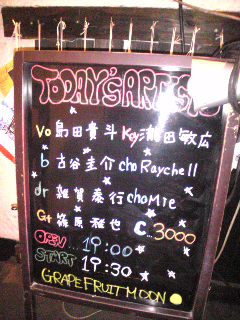 TODAY'S ARTIST
Vo 島田貴斗 Key 瀧田敏広
b 古谷圭介 cho Raychell
dr 雑賀泰行 cho Mie
Gt 篠原雅也 C. 3000
OPEN ... 19:00
START 19:30
GRAPEFRUIT MOON